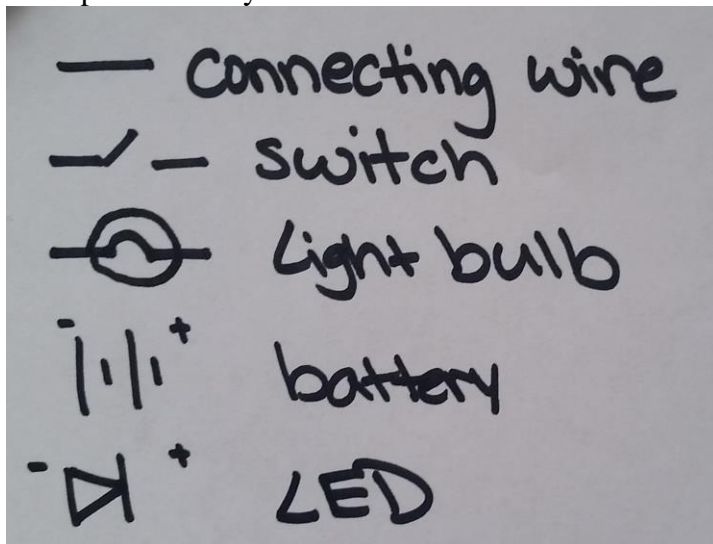 connecting wire
switch
Light bulb
- +
battery
- +
LED